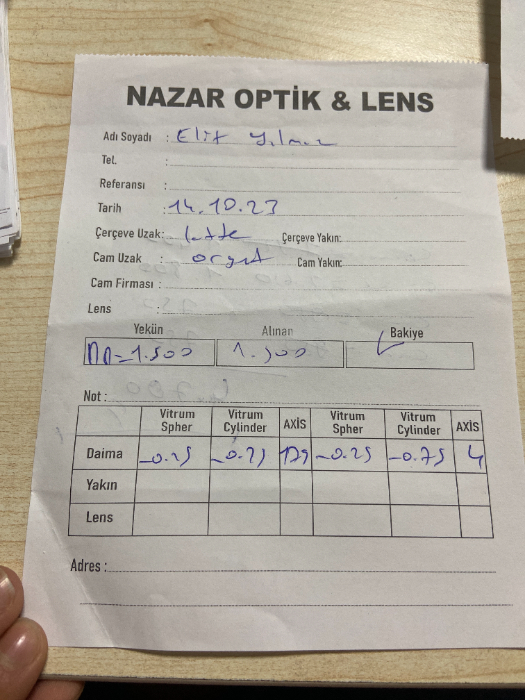 NAZAR OPTİK & LENS
Adı Soyadı : Elif Yılmaz
Tel. :
Referansı :
Tarih : 14.10.23
Çerçeve Uzak: Çerçeve Yakın:
Cam Uzak : Cam Yakın:
Cam Firması :
Lens :
Yekün Alınan Bakiye
1.500 1.500
Not :
Vitrum Spher Vitrum Cylinder AXİS Vitrum Spher Vitrum Cylinder AXİS
Daima -0.25 -0.75 -0.25 -0.75 4
Yakın
Lens
Adres :